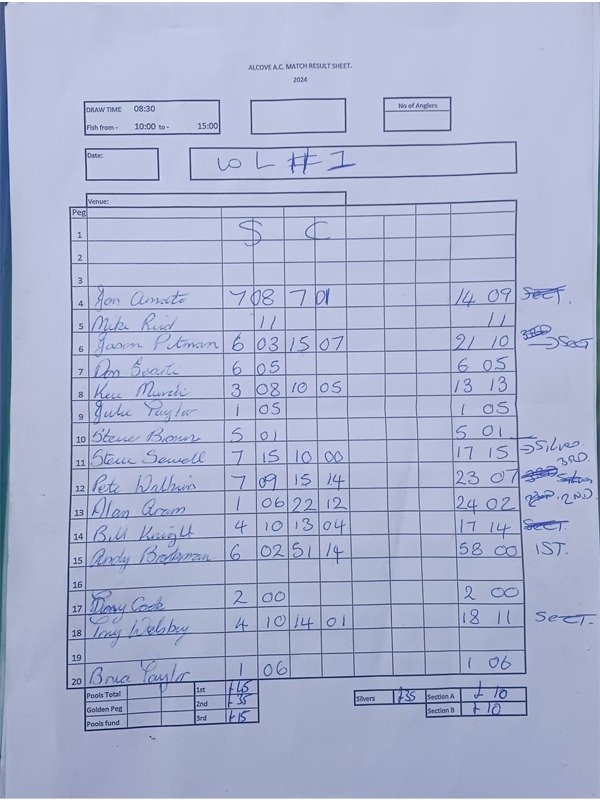 ALCOVE A.C. MATCH RESULT SHEET.
2024
DRAW TIME 08:30
No of Anglers
Fish from - 10:00 to - 15:00
Date:
LOL # 1
Venue:
Peg
S C
1
2
3
4 Jon 7 08 7 01 14 09 SECT.
5 Mike Reid 11 11
6 Jason Pitman 6 03 15 07 21 10 3RD → SECT
7 Don 6 05 6 05
8 Ken 3 08 10 05 13 13
9 Julie Taylor 1 05 1 05
10 Steve Brown 5 01 5 01
11 Steve Sewell 7 15 10 00 17 15 → Silvers
12 Pete 7 09 15 14 23 07 3RD
13 Alan 1 06 22 12 24 02 2ND
14 Bill Knight 4 10 13 04 17 14 SECT.
15 Andy 6 02 51 14 58 00 1ST.
16
17 Tony Cook 2 00 2 00
18 Tony Welsby 4 10 14 01 18 11 SECT.
19
20 Taylor 1 06 1 06
Pools Total 1st £45 Silvers £35 Section A £10
Golden Peg 2nd £35 Section B £10
Pools fund 3rd £15